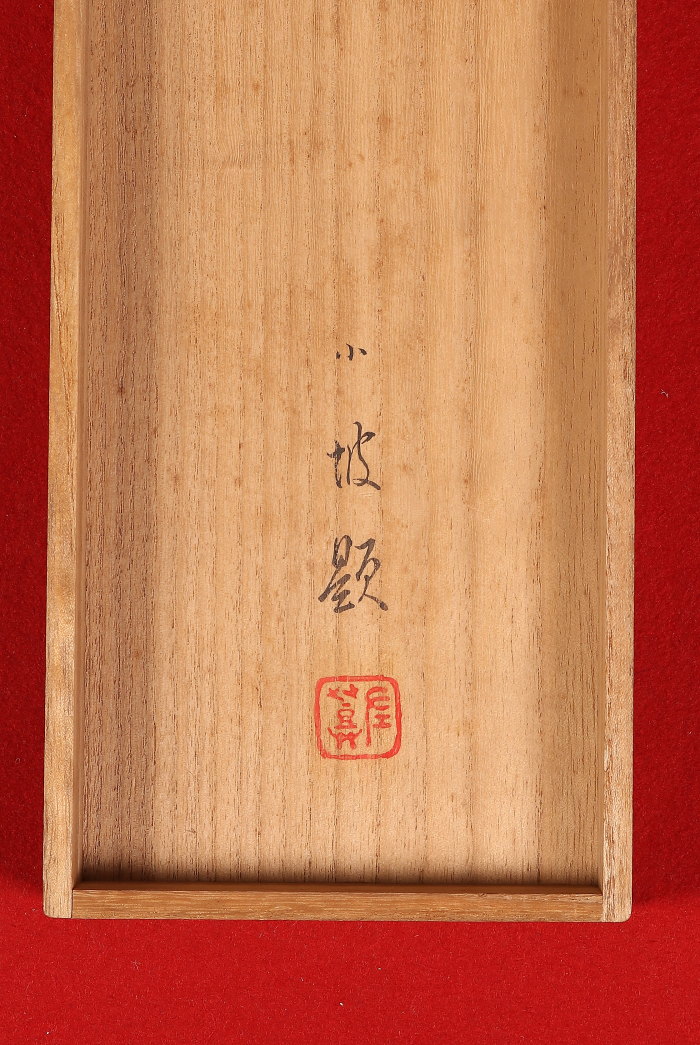 小坡題